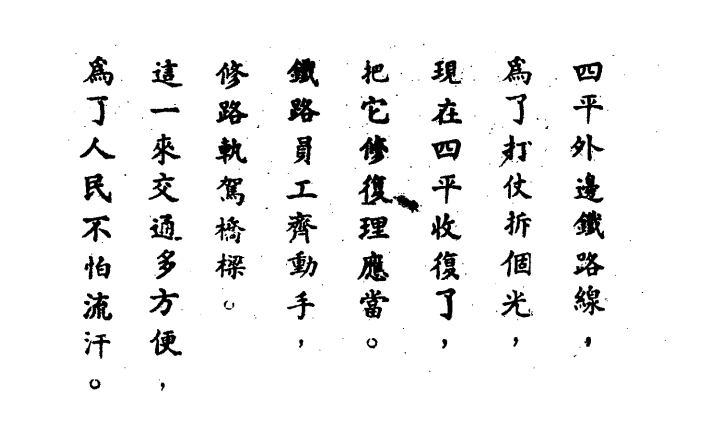 四平外邊鐵路線，
爲了打仗拆個光，
現在四平收復了，
把它修復理應當。
鐵路員工齊動手，
修路軌駕橋樑。
這一來交通多方便，
爲了人民不怕流汗。